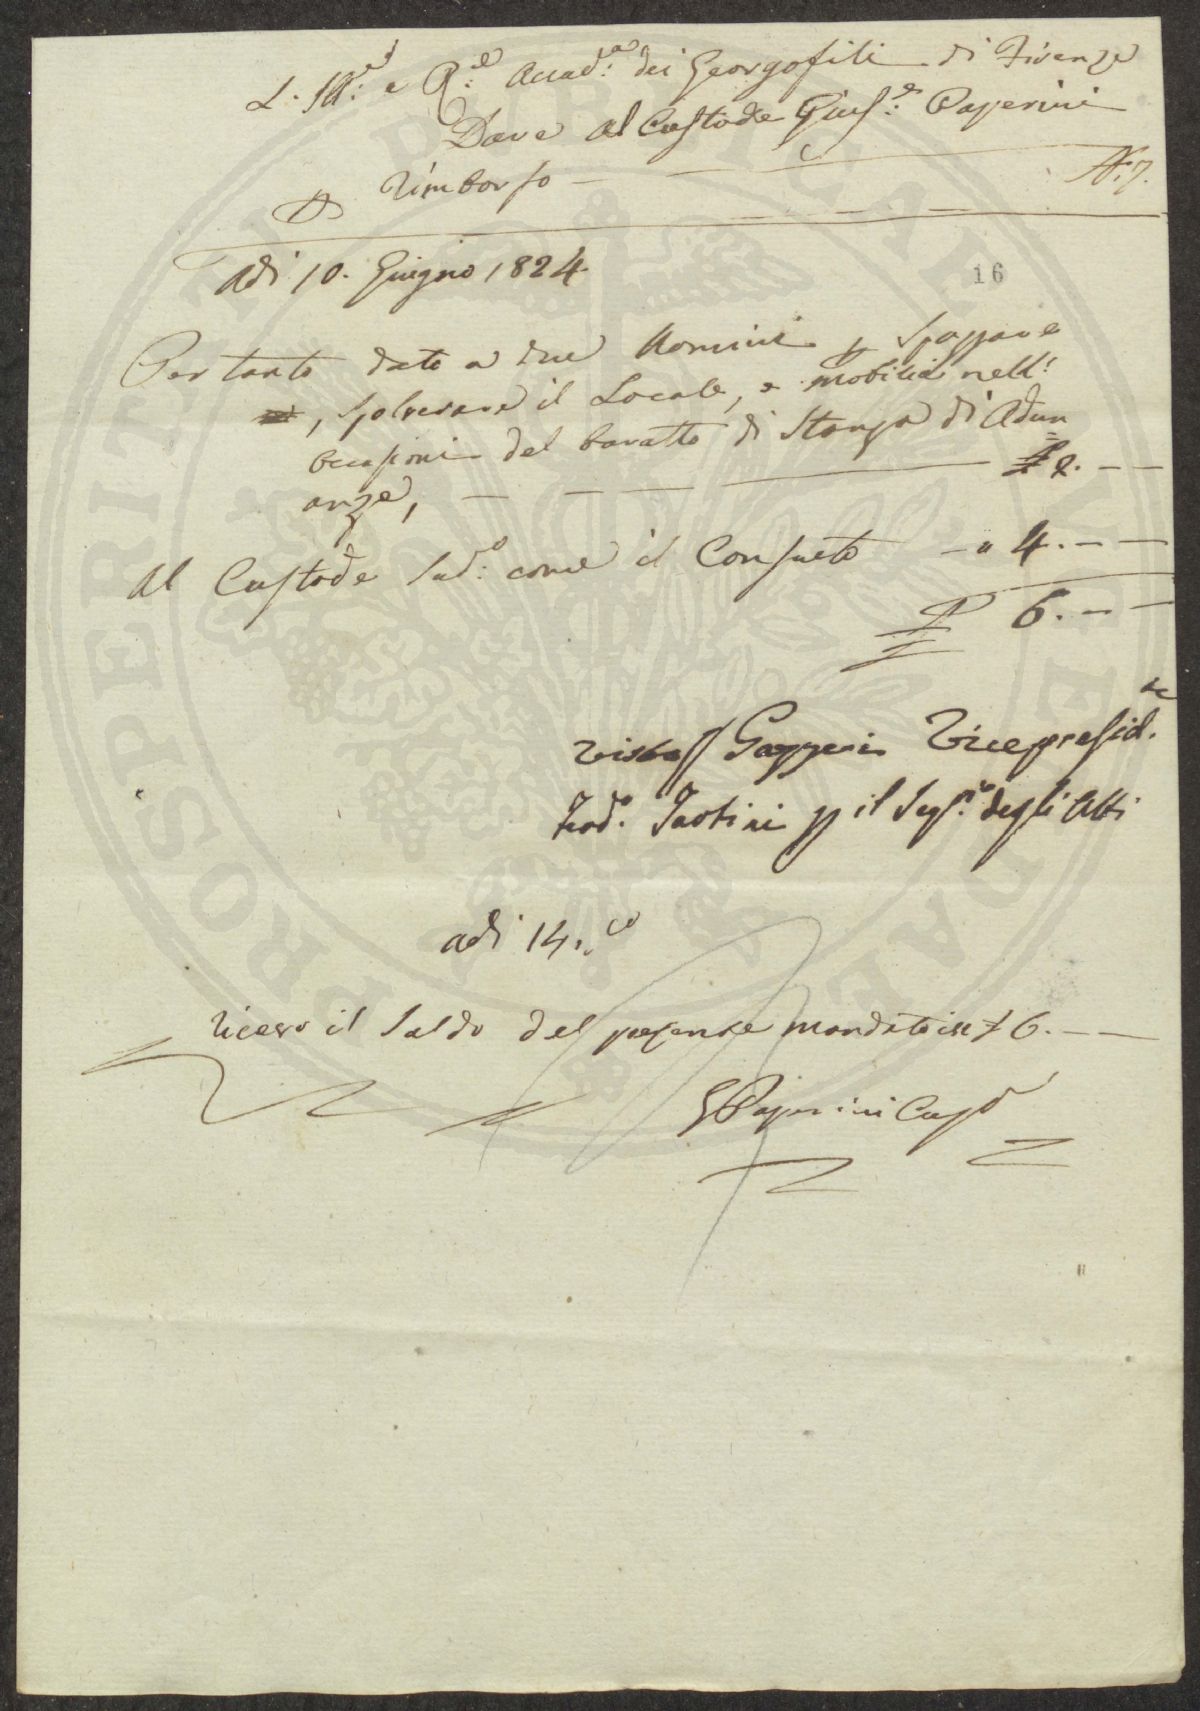 L'Il.: e R.le Accad.a dei Georgofili di Firenze
Dare al Custode Gius.e Paperini
Rimborso — N.7.
16
Adì 10. Giugno 1824
Per tanto dato a due Uomini p Spazzare
, Spolverare il Locale, e mobilia nell'
Occasioni del baratto di Stanza di Adun
anze, — £ 2. — —
Al Custode Sud.o come il Consueto — " 4. — —
£ 6. — —
visto Gazzeri Vicepresid.te
Ferd.o Tartini p il Seg.rio degli Atti
adì 14. d.o
Ricevo il Saldo del presente mandato in £ 6. — —
G Paperini Cust.e
PROSPERITATI PUBLICAE AUGENDAE